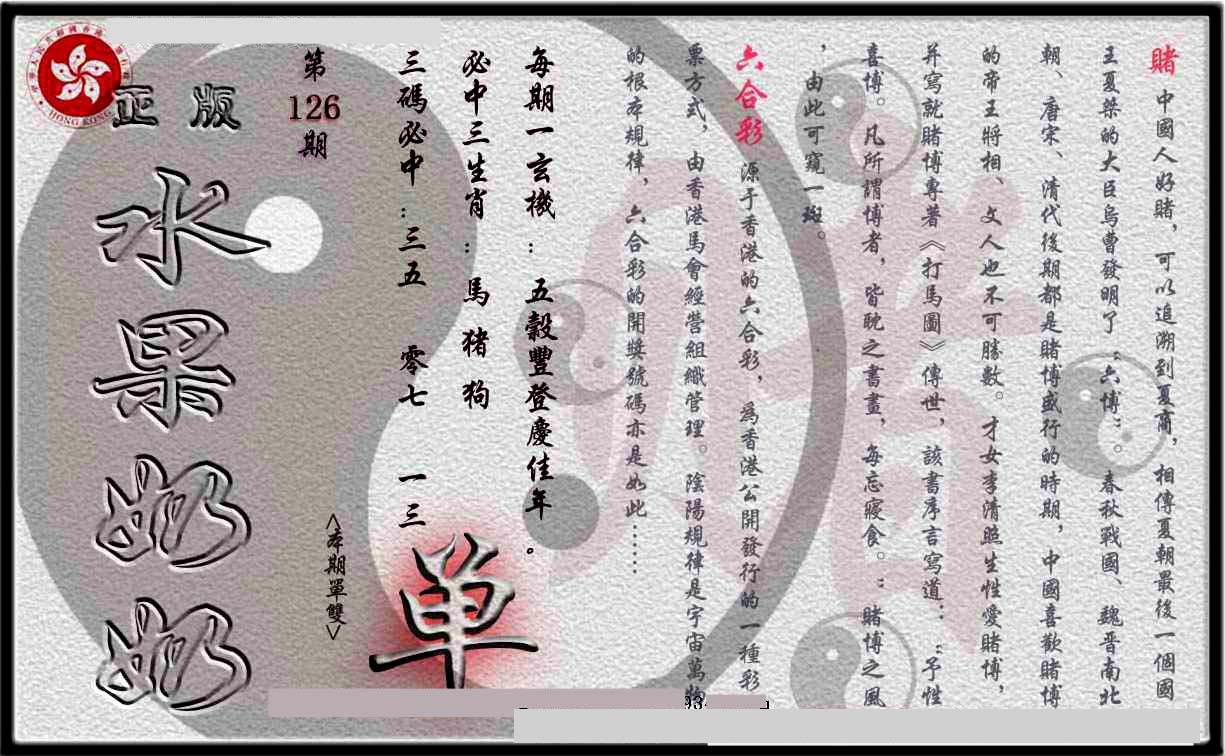 賭 中國人好賭，可以追溯到夏商，相傳夏朝最後一個國
王夏桀的大臣烏曹發明了“六博”。春秋戰國、魏晋南北
朝、唐宋、清代後期都是賭博盛行的時期，中國喜歡賭博
的帝王將相、文人也不可勝數。才女李清照生性愛賭博，
并寫就賭博專著《打馬圖》傳世，該書序言寫道：“予性
喜博。凡所謂博者，皆耽之書畫，每忘寢食。”賭博之風
，由此可窺一斑。
六合彩 源于香港的六合彩，為香港公開發行的一種彩
票方式，由香港馬會經營組織管理。陰陽規律是宇宙萬物
的根本規律，六合彩的開獎號碼亦是如此……
每期一玄機：五穀豐登慶佳年。
必中三生肖：馬 猪 狗
三碼必中：三五 零七 一三
單
<本期單雙>
第126期
正版
水果奶奶
HONG KONG